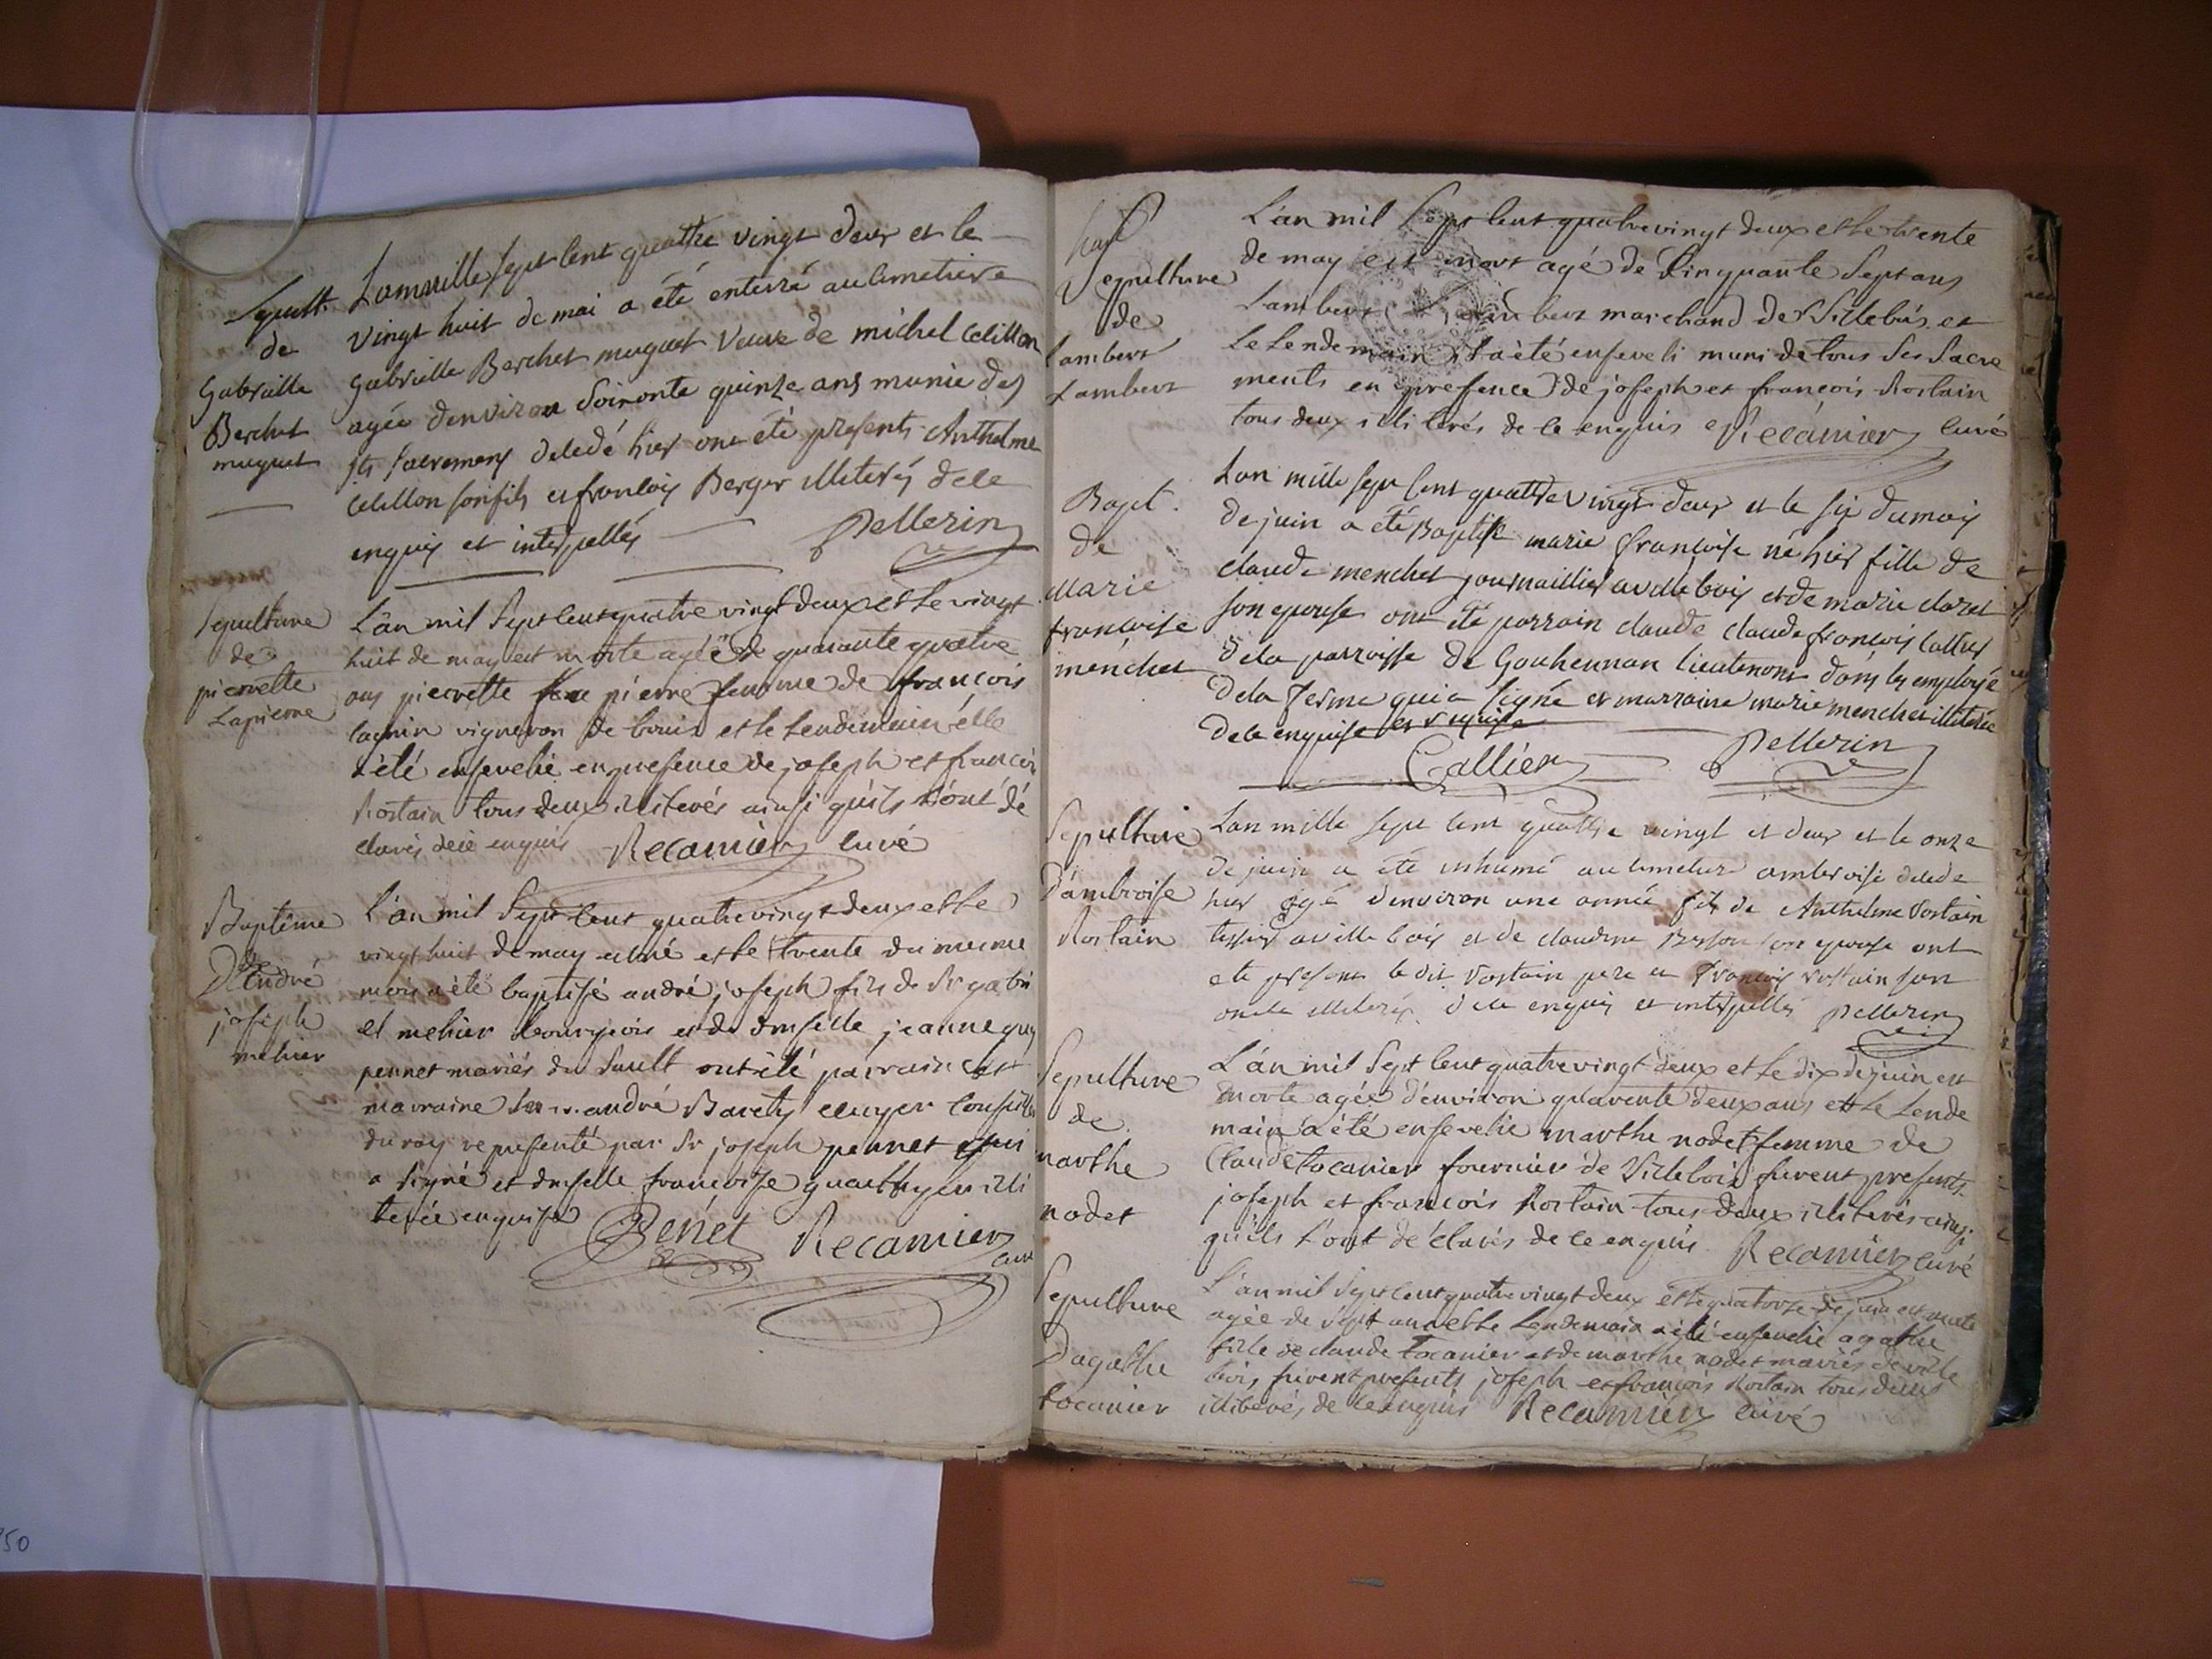 Sepult.
de
Gabrielle
Berchet
muguet
L'an mille sept cent quattre vingt deux et le
vingt huit de mai a été enterré au cimetiere
Gabrielle Berchet muguet veuve de michel Celillon
agée d'environ Soixante quinze ans munie des
sts sacremens decedé hier ont été presents Anthelme
Celillon son fils et françois Berger illiterés de ce
enquis et interpellés Pellerin
sepulture
de
pierrette
Lapierre
L'an mil Sept cent quatre vingt deux et le vingt
huit de may est morte agée de quarante quatre
ans pierrette pierre femme de françois
vigneron de bouis et le lendemain elle
a été ensevelie en presence de joseph et francois
Rostain tous deux illiterés ainsi quils l'ont dé
clarés de ce enquis Recamier curé
Baptême
D'André
joseph
mehier
L'an mil Sept cent quatre vingt deux et le
vingt huit de may est né et le trente du meme
mois a été baptisé andré joseph fils de Sr gabri
el mehier bourgeois et de dmselle jeanne
pennet mariés du Sault ont été parrain et
marraine andré Barety ecuyer conseiller
du roy representé par Sr joseph pennet qui
a signé et dmselle francoise illi
terée enquise
Penet Recamier
curé
Sepulture
de
Lambert
Lambert
L'an mil Sept cent quatre vingt deux et le trente
de may est mort agé de Cinquante Sept ans
Lambert Lambert marchand de Villebois et
Le Lendemain il a été enseveli muni de tous Ses Sacre
ments en presence de joseph et francois Rostain
tous deux illiterés de ce enquis Recamier curé
Bapt.
de
Marie
francoise
menchet
L'an mille sept cent quattre vingt deux et le six du mois
de juin a été Baptisé marie francoise né hier fille de
claude menchet journaillier a villebois et de marie claret
son epouse ont été parrain claude claude francois Callier
de la parroisse de Gouhennan lieutenant dans les employé
de la ferme qui a signé et marraine marie menchet illiterée
de ce enquise et requise
Callier Pellerin
Sepulture
D'ambroise
Rostain
L'an mille sept cent quattre vingt et deux et le onze
de juin a été inhumé au cimetiere ambroise decedé
hier agé d'environ une année fils de Anthelme Rostain
tessier a villebois et de claudine Besson son epouse ont
eté presens le dit Rostain pere et françois rostain son
oncle illiterés de ce enquis et interpellés Pellerin
Sepulture
de
marthe
nodet
L'an mil Sept cent quatre vingt deux et le dix de juin est
morte agée d'environ quarente deux ans et le Lende
main a été ensevelie marthe nodet femme de
Claude tocanier fournier de Villebois furent presents
joseph et francois Rostain tous deux illiterés ainsi
quils l'ont déclarés de ce enquis Recamier curé
Sepulture
D'agathe
tocanier
L'an mil Sept cent quatre vingt deux et le quatorze de juin est morte
agée de sept ans et le Lendemain a été ensevelie agathe
fille de claude tocanier et de marthe nodet mariés de ville
bois, furent presents joseph et francois Rostain tous deux
illiterés de ce enquis Recamier curé